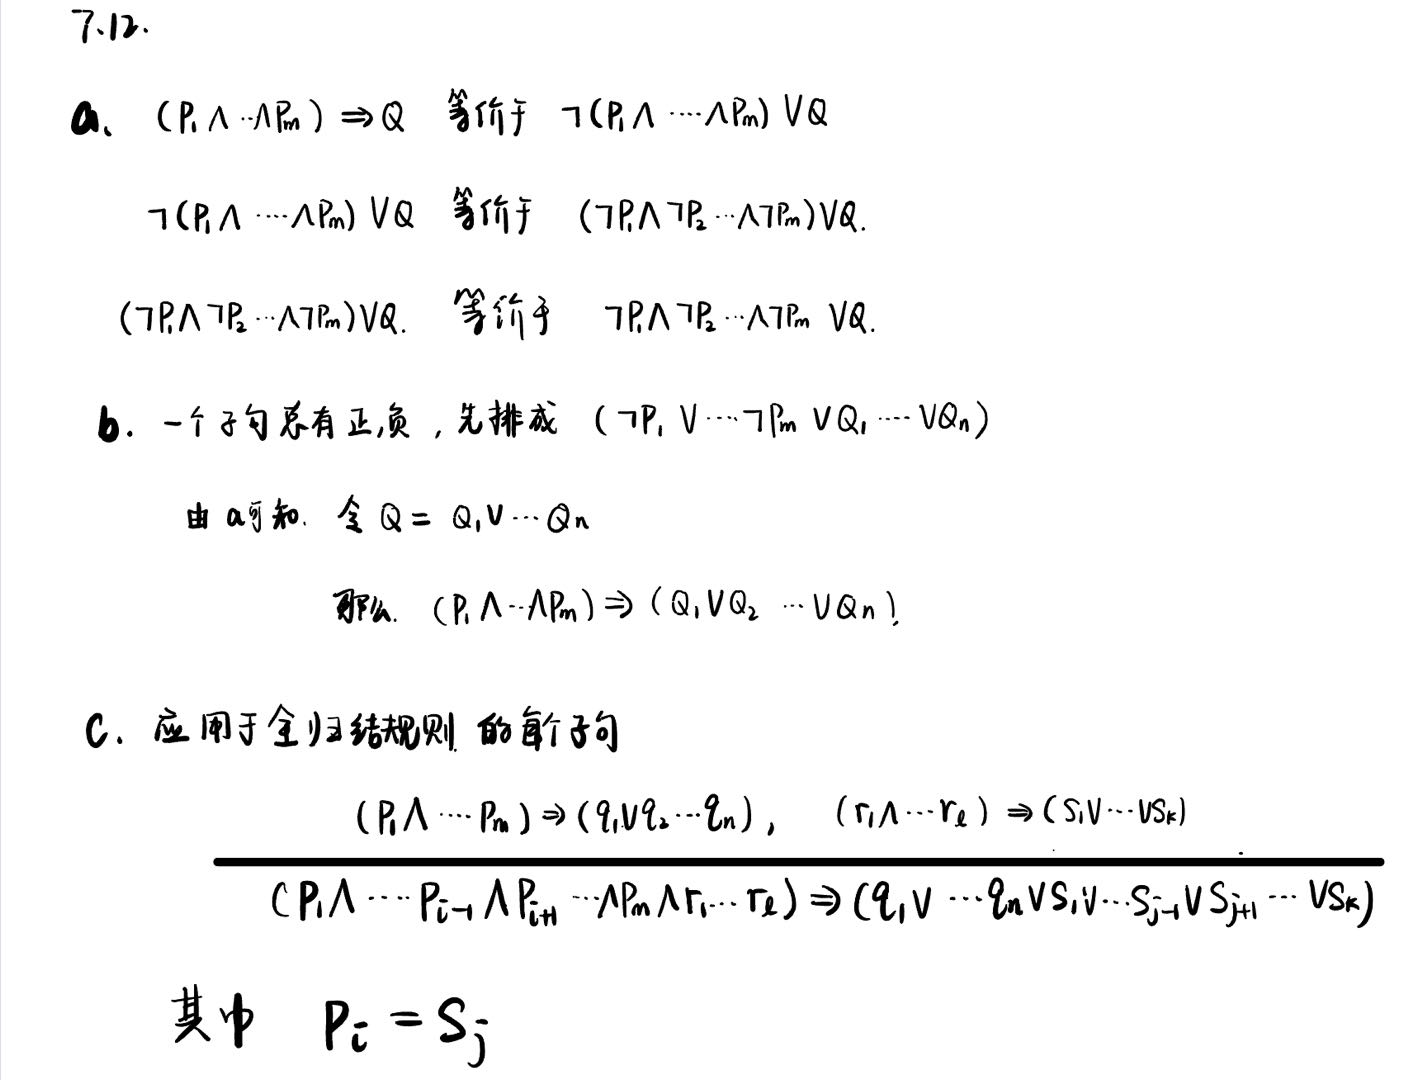 7.12.
a. (P₁∧··∧Pₘ)⇒Q 等价于 ¬(P₁∧····∧Pₘ)∨Q
¬(P₁∧····∧Pₘ)∨Q 等价于 (¬P₁∧¬P₂···∧¬Pₘ)∨Q.
(¬P₁∧¬P₂···∧¬Pₘ)∨Q. 等价于 ¬P₁∧¬P₂···∧¬Pₘ ∨Q.
b. 一个子句总有正,负,先排成 (¬P₁∨···¬Pₘ∨Q₁····∨Qₙ)
由a可知. 令Q= Q₁∨···Qₙ
那么. (P₁∧··∧Pₘ)⇒(Q₁∨Q₂ ···∨Qₙ).
c. 应用于全归结规则 的每个子句
(P₁∧····Pₘ)⇒(q₁∨q₂···qₙ), (r₁∧···rₗ)⇒(S₁∨···∨Sₖ)
(P₁∧····Pᵢ₋₁∧Pᵢ₊₁···∧Pₘ∧r₁···rₗ)⇒(q₁∨···qₙ∨S₁∨···Sⱼ₋₁∨Sⱼ₊₁···∨Sₖ)
其中 Pᵢ=Sⱼ